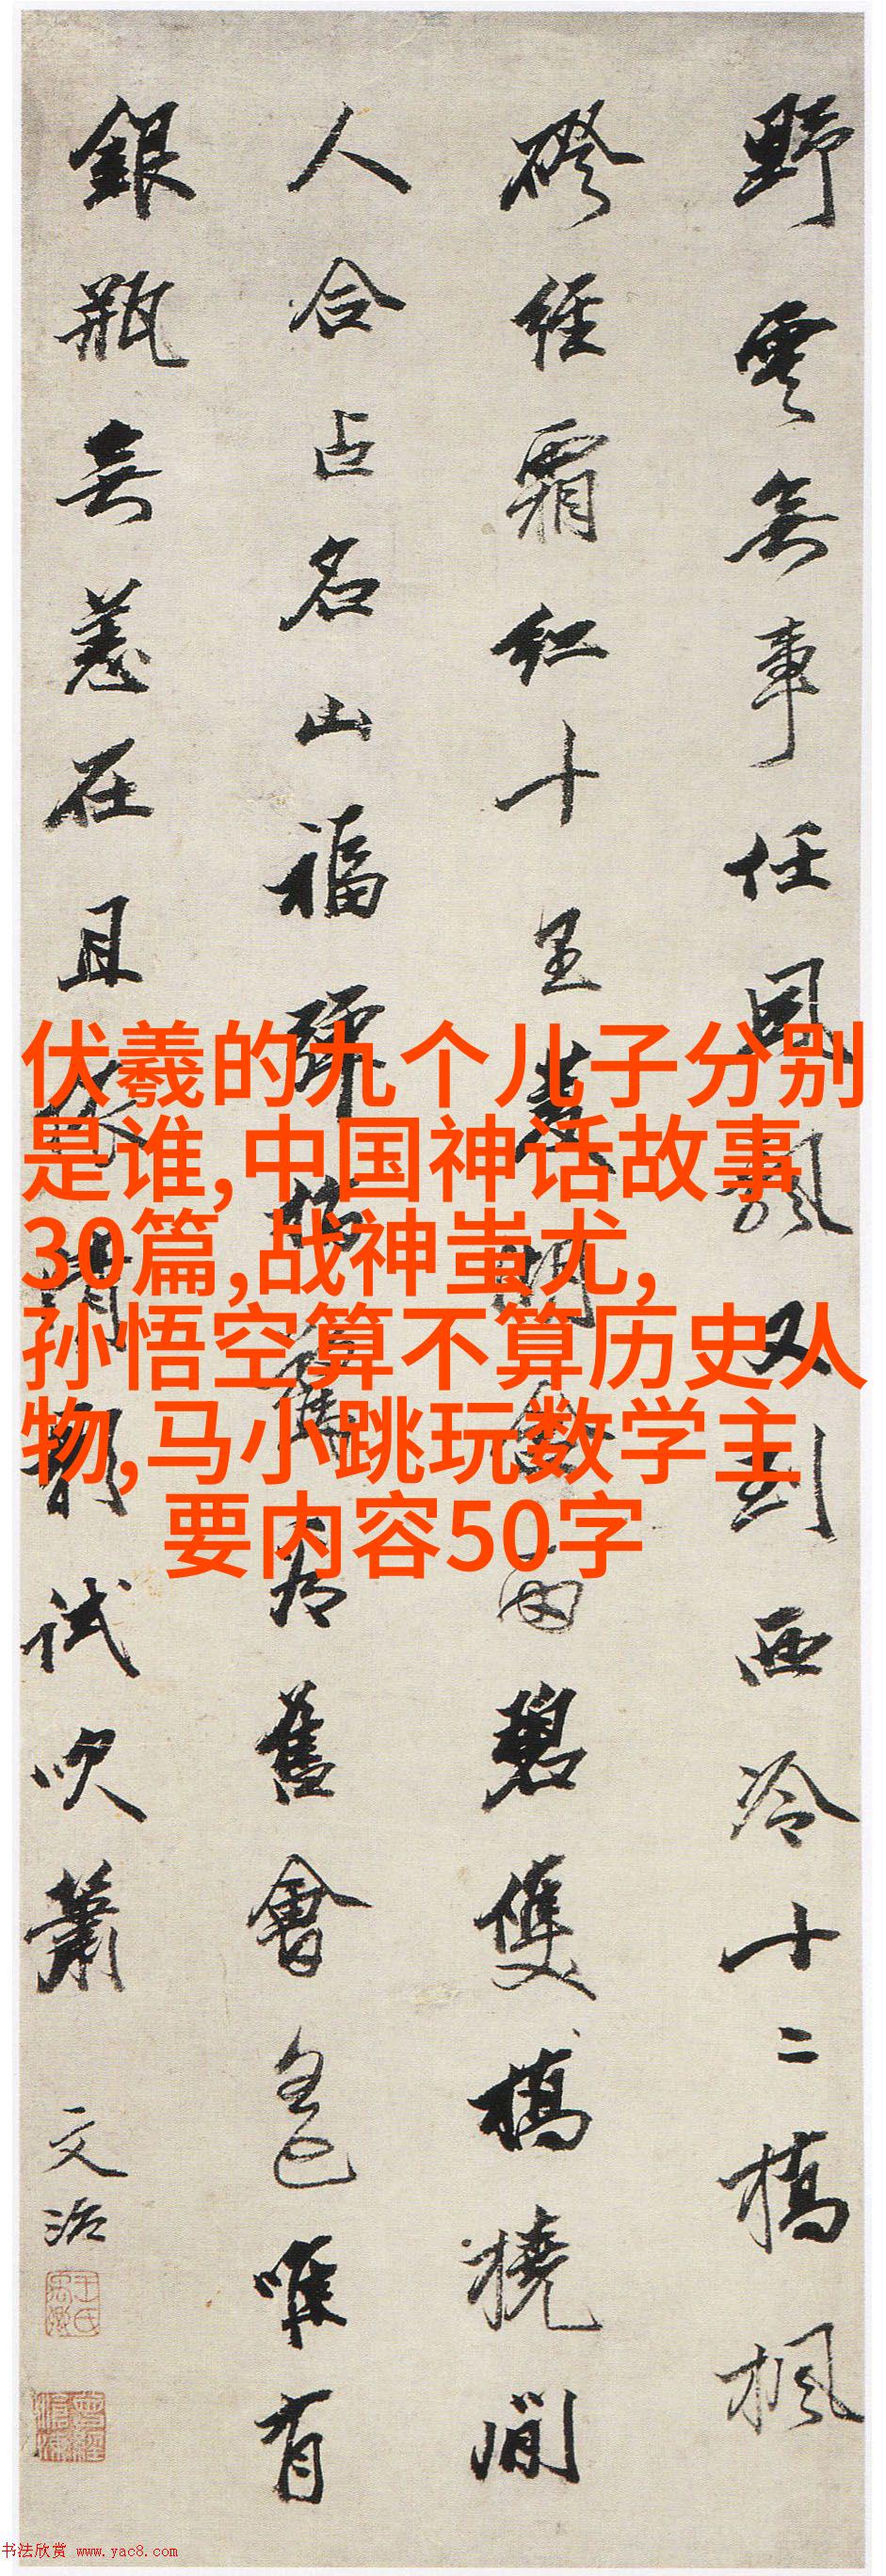 野雲無事任風飄又到西泠十二橋楓
磴經霜紅十里菱雨碧雙橋橈閒
人合占名山福舊會唯有
銀瓶無恙在且試吹簫
文治
王氏禹卿
伏羲的九个儿子分别
是谁,中国神话故事
30篇,战神蚩尤,
孙悟空算不算历史人
物,马小跳玩数学主
要内容50字
书法欣赏 www.yac8.com